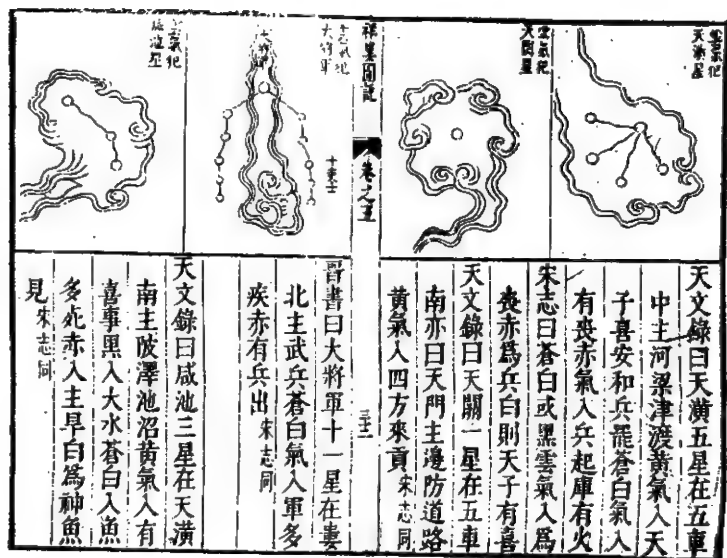 雲氣犯
天潢星
雲氣犯
天關星
祥異圖說
卷之五
三三
雲氣犯
大將軍
大將軍
十一星
雲氣犯
咸池星
天文錄曰天潢五星在五車
中主河梁津渡黃氣入天
子喜安和兵罷蒼白氣入
有喪赤氣入兵起庫有火
宋志曰蒼白或黑雲氣入爲
喪赤爲兵白則天子有喜
天文錄曰天關一星在五車
南亦曰天門主邊防道路
黃氣入四方來貢宋志同
晉書曰大將軍十一星在婁
北主武兵蒼白氣入軍多
疾赤有兵出宋志同
天文錄曰咸池三星在天潢
南主陂澤池沼黃氣入有
喜事黑入大水蒼白入魚
多死赤入主旱白爲神魚
見宋志同